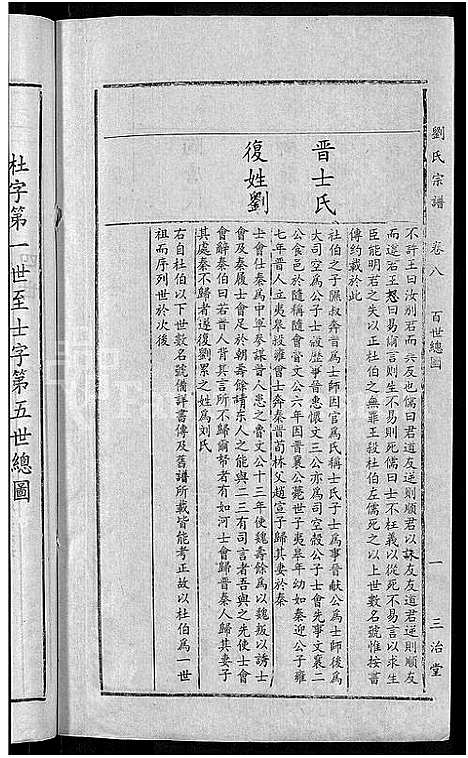 劉氏宗譜 卷八 百世總圖 一 三治堂
不許王曰汝別君而異友也儒曰君道友逆則順君以誅友友道君逆則順友
而違君王怒曰易爾言則生不易則死儒曰士不枉義以從死不易言以求生
臣能明君之失以正杜伯之無罪王殺杜伯左儒死之以上世數名號惟按書
傳約載於此
晋士氏
杜伯之子隰叔奔晋為士師因官為氏稱士氏子士蒍事晉献公為士師後為
大司空為公子士縠歴事晉惠懷文三公亦為司空縠公子士會先事文襄二
公食邑於隨稱隨會晉文公六年因晋襄公薨世子夷皋年幼如秦迎公子雍
七年晋人立夷皋拔雍曾士奔秦晋荀林父趙宣子歸其妻於秦
復姓劉
士會仕秦為中軍參謀晋人患之魯文公十三年使魏壽餘為以魏叛以誘士
會及秦履士會足於朝壽餘請東人之能與二三有司言者吾與之先使士會
會辭秦伯曰若背其言所不歸爾帑者有如河士會歸晋秦人歸其妻子
其處秦不歸者遂復劉累之姓為刘氏
右自杜伯以下世數名號備詳書傳及舊譜所載皆能考正故以杜伯為一世
祖而序列世於次後
杜字第一世至士字第五世總圖